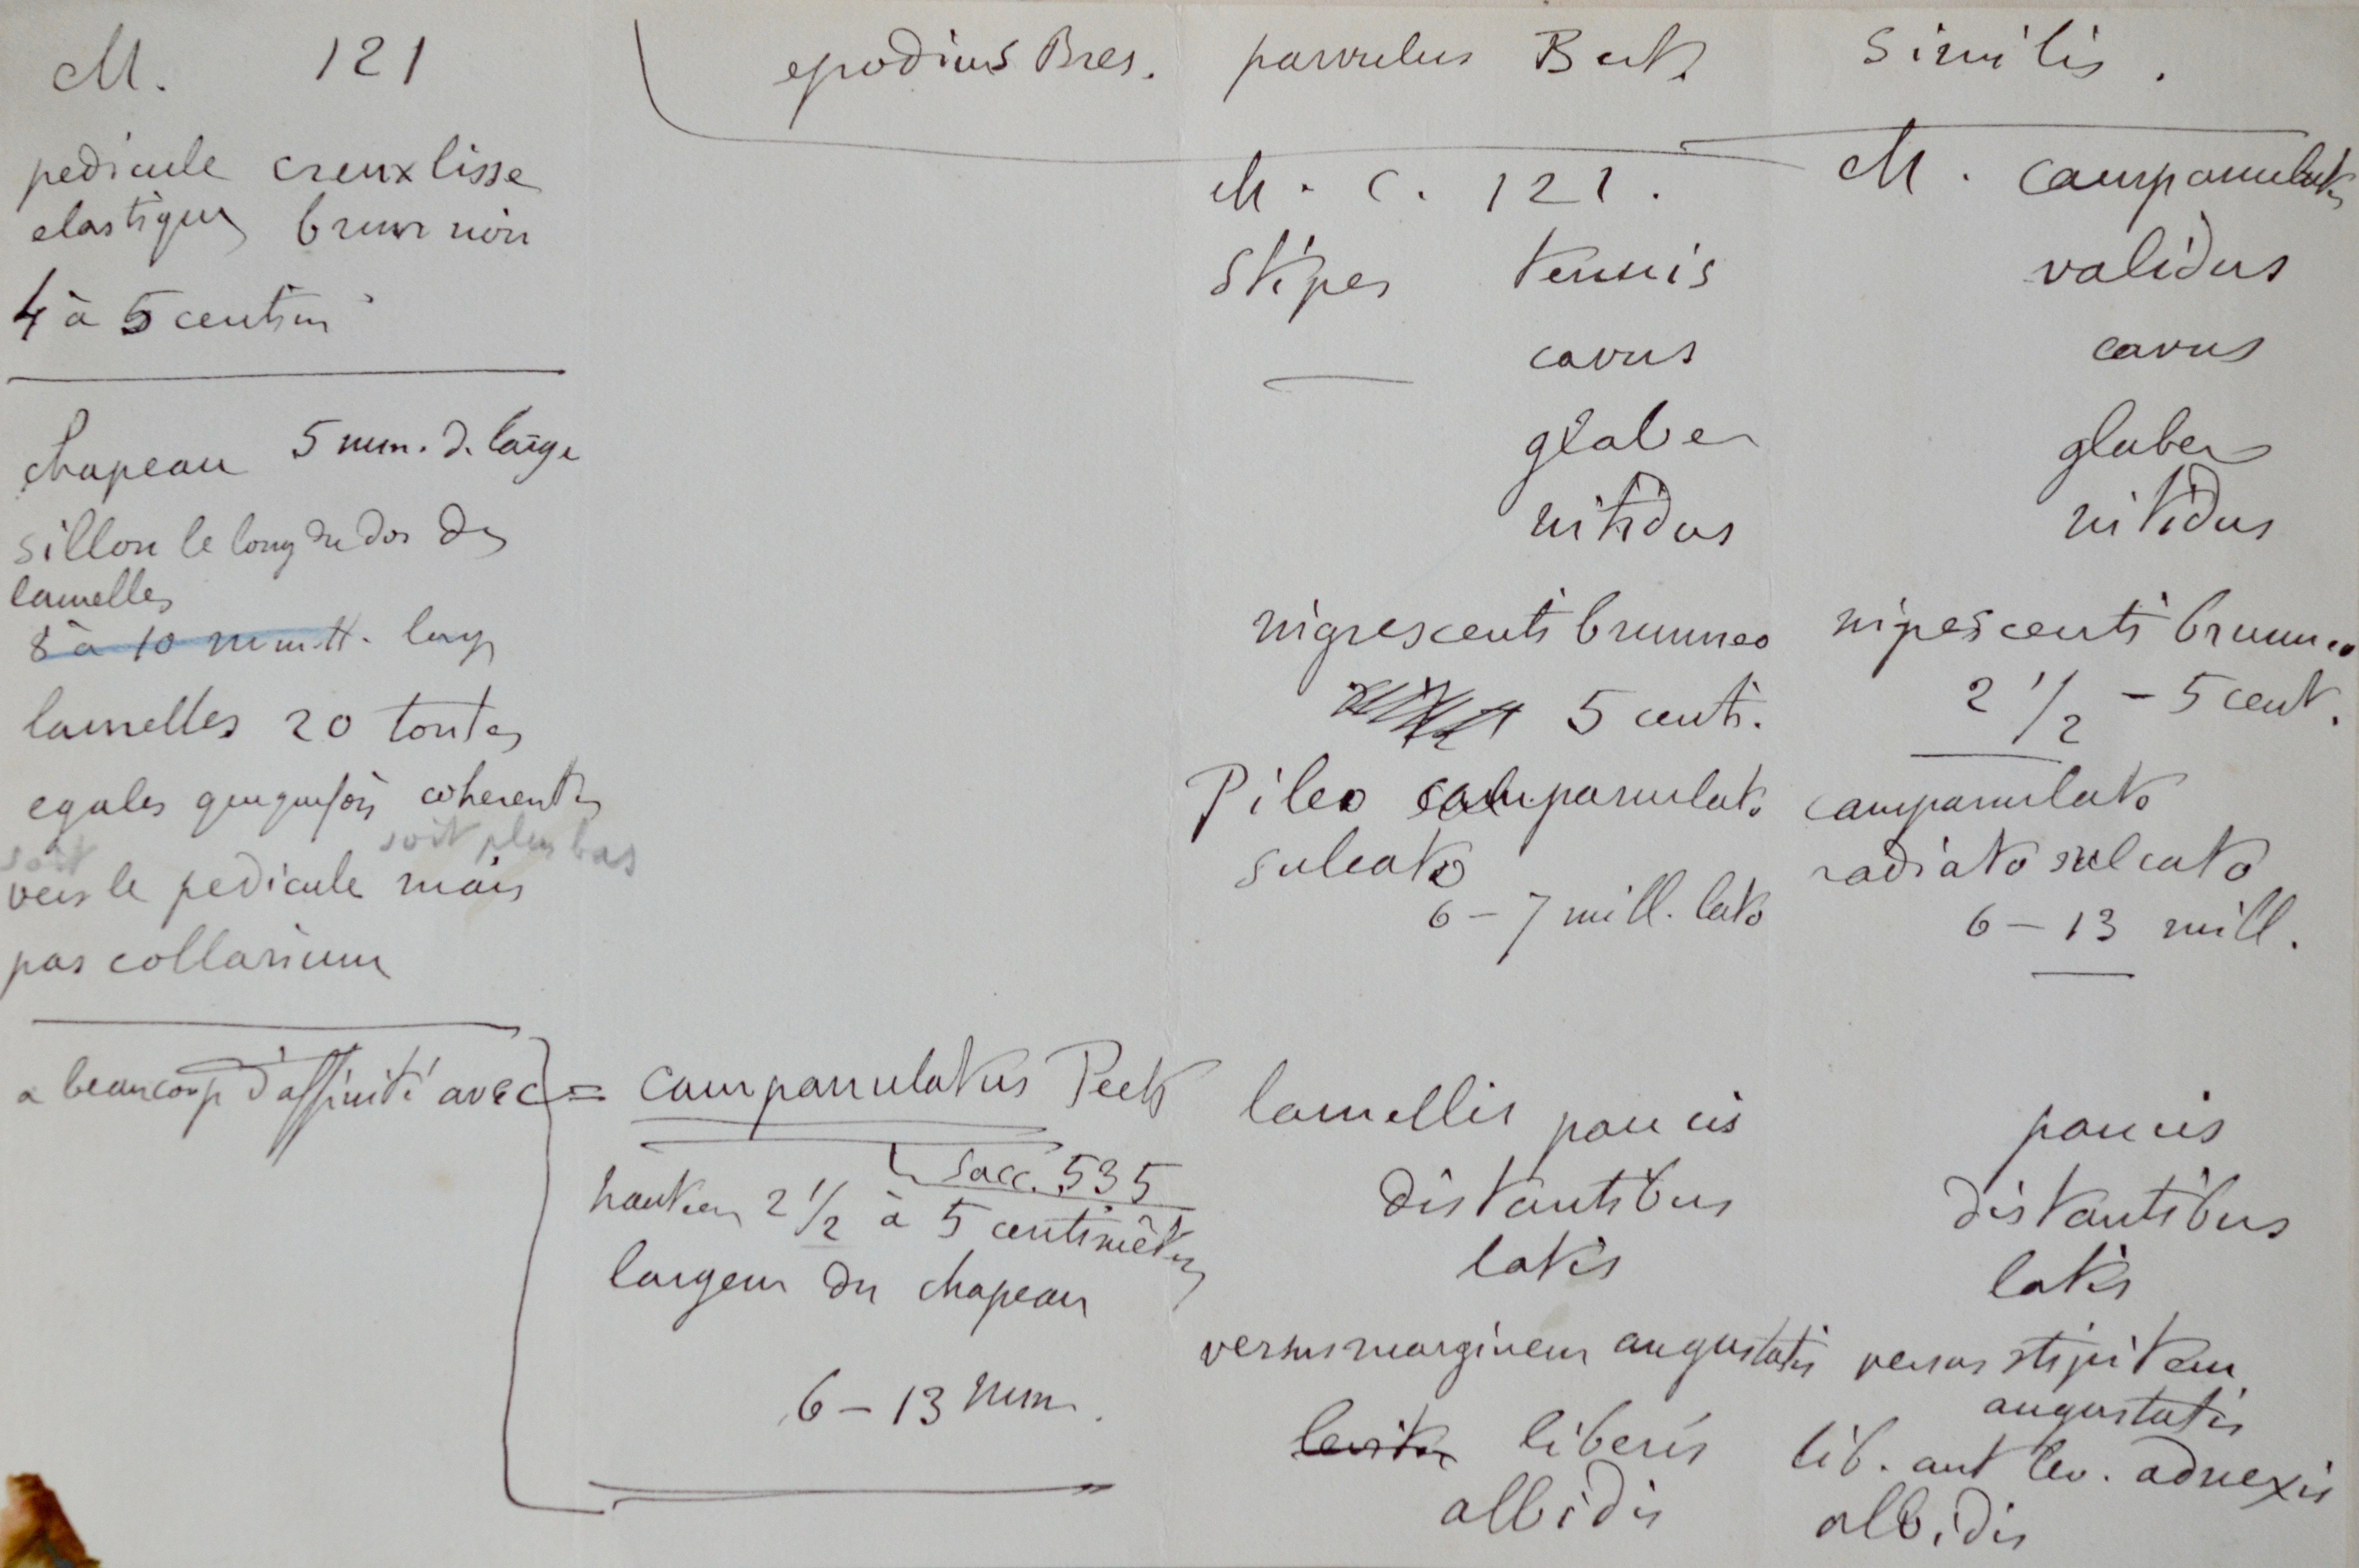 M. 121
pedicule creux lisse
elastique brun noir
4 à 5 centim
chapeau 5 mm. d. large
sillon le long du dos des
lamelles
8 à 10 long
lamelles 20 toutes
egales coherentes
soit plus bas
soit
vers le pedicule mais
pas collarium
a beaucoup d'affinité avec =
campanulatus Peck
Sacc. 535
hauteur 2 1/2 à 5 centimètres
largeur du chapeau
6 – 13 mm.
epodius Bres. parvulus Berk similis.
M. C. 121.
Stipes tenuis
cavus
glaber
nitidus
nigrescenti brunneo
5 centi.
Pileo campanulato
sulcato
6 – 7 mill. lato
lamellis paucis
distantibus
latis
versus marginem angustatis
leviter liberis
albidis
M. campanulatus
validus
cavus
glaber
nitidus
nigrescenti brunneo
2 1/2 – 5 cent.
campanulato
radiato sulcato
6 – 13 mill.
paucis
distantibus
latis
versus stipitem
angustatis
lib. aut lev. adnexis
albidis